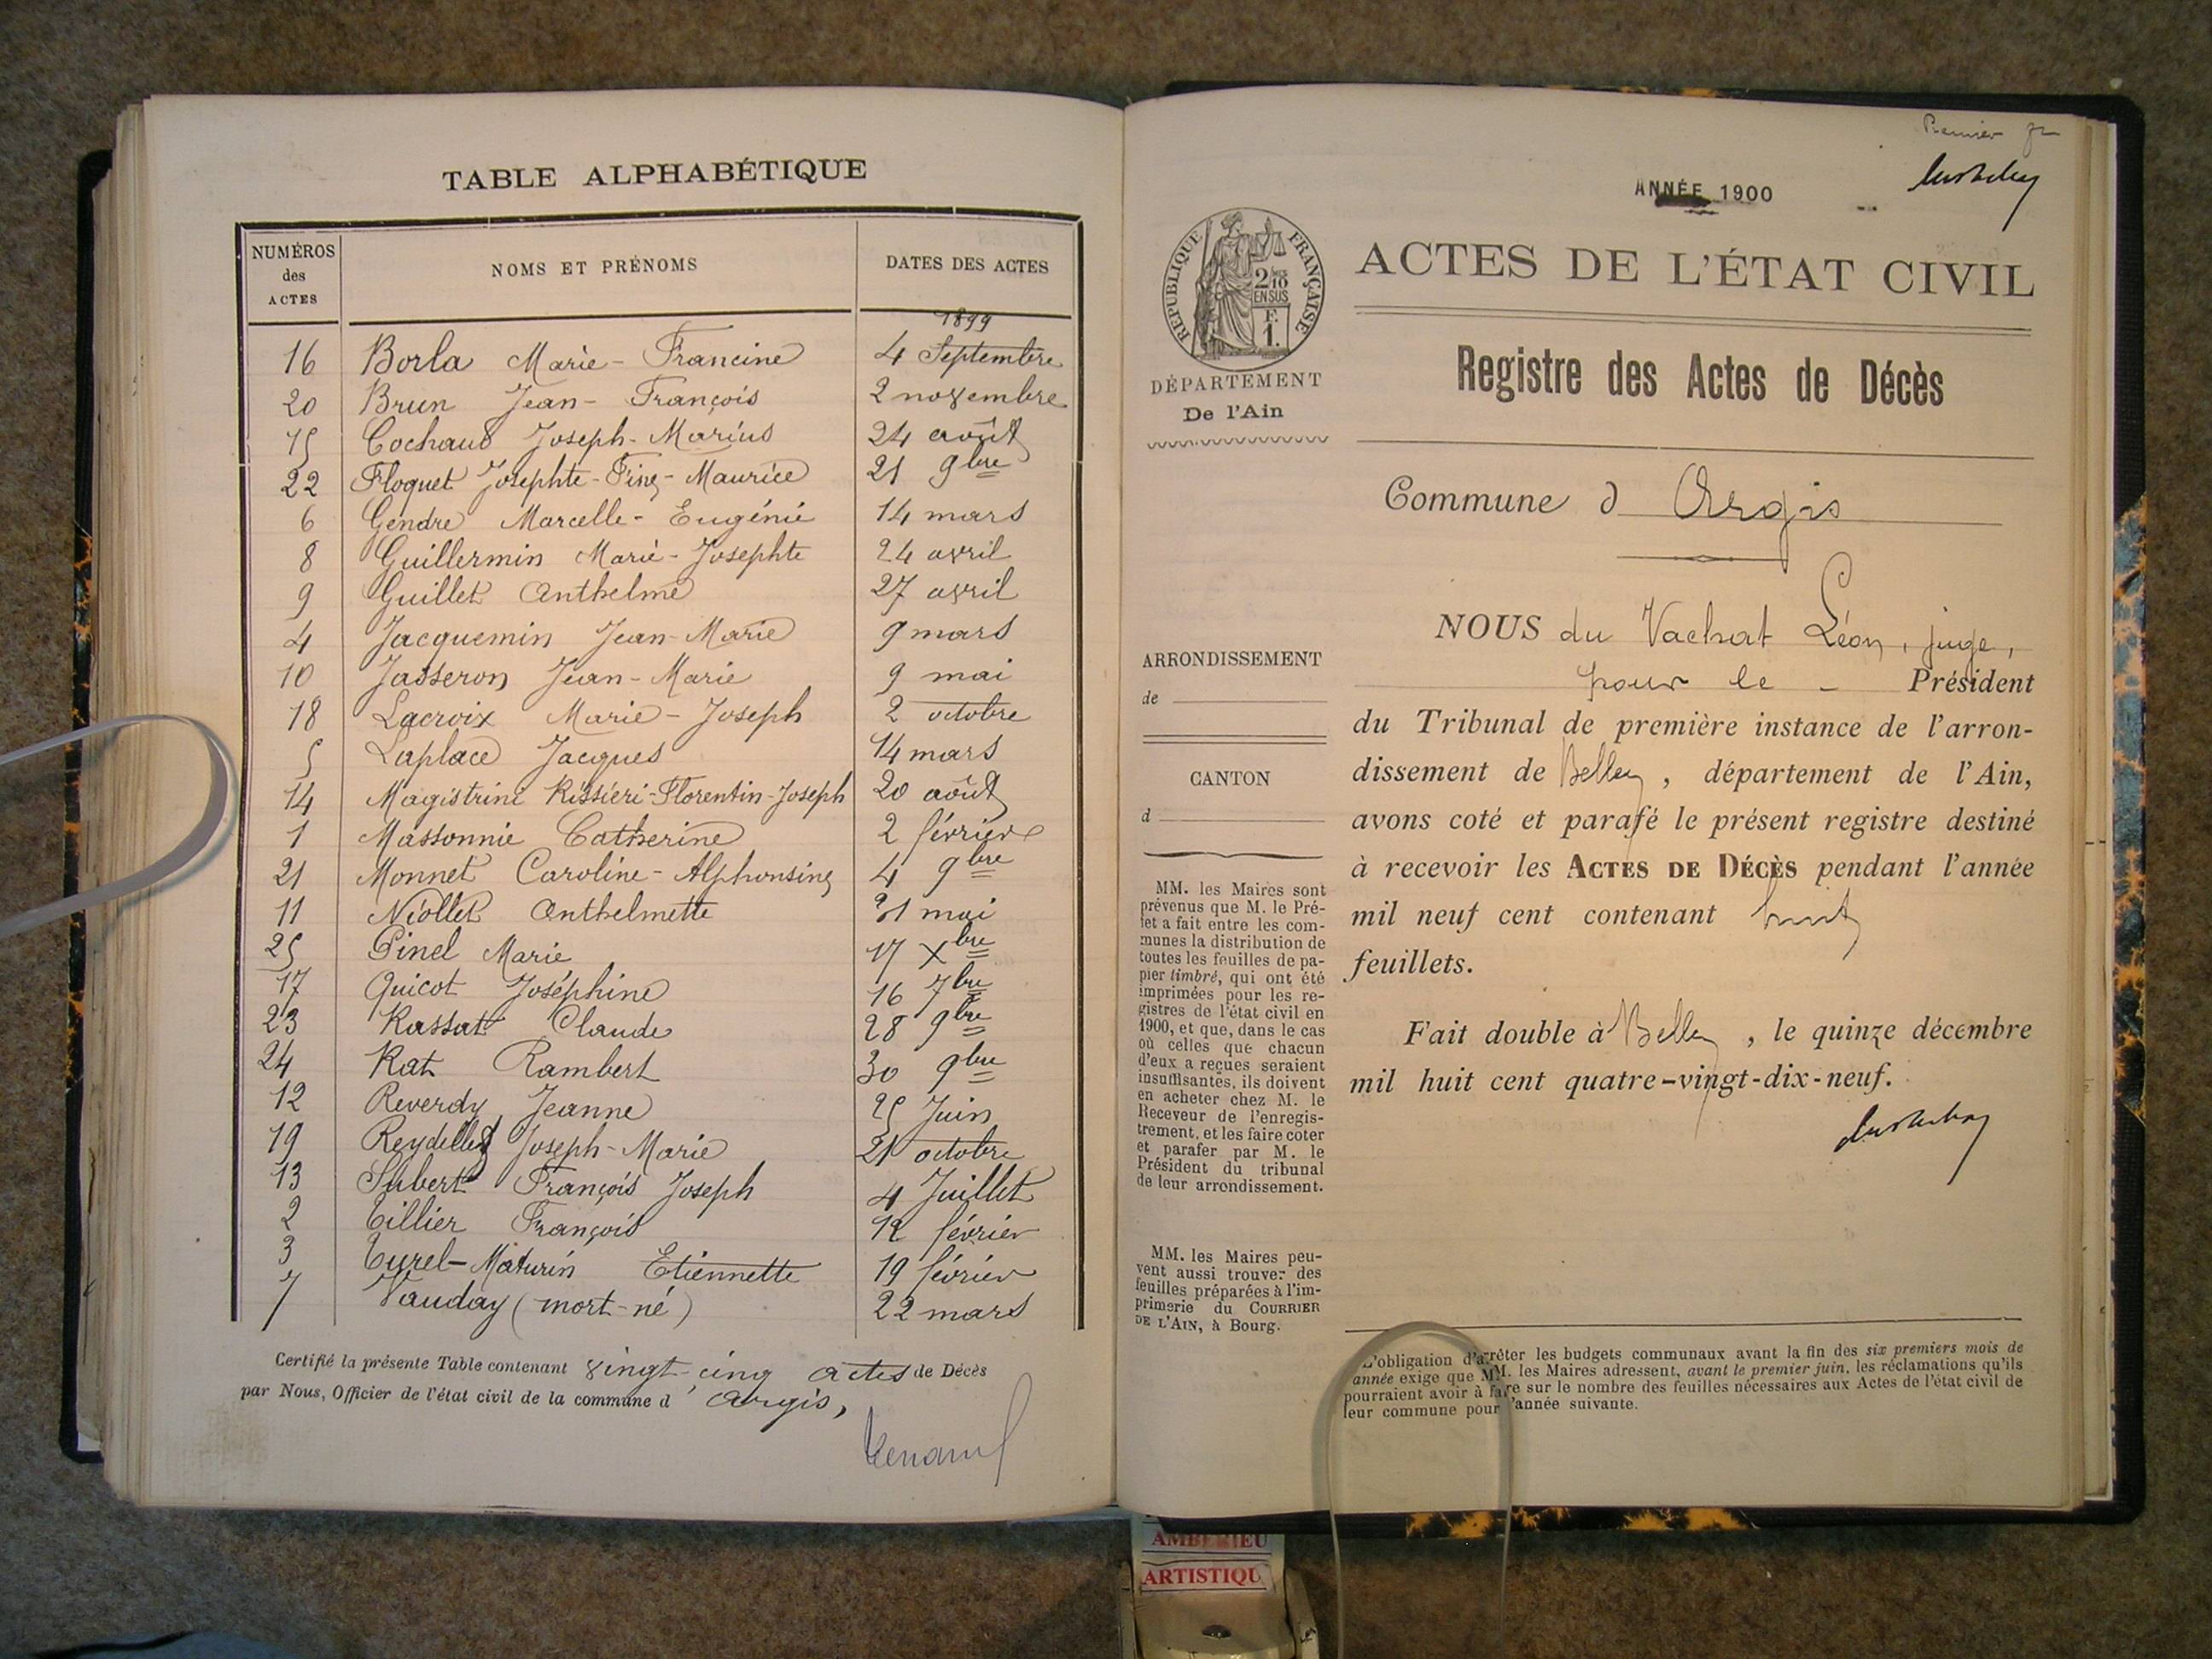 TABLE ALPHABÉTIQUE
NUMÉROS des ACTES NOMS ET PRÉNOMS DATES DES ACTES
1899
16 Borla Marie-Francine 4 Septembre
20 Brun Jean-François 2 novembre
15 Cochaud Joseph-Marius 24 août
22 Floquet Josephte- Maurice 21 9bre
6 Gendre Marcelle-Eugénie 14 mars
8 Guillermin Marie-Josephte 24 avril
9 Guillet Anthelme 27 avril
4 Jacquemin Jean-Marie 9 mars
10 Jasseron Jean-Marie 9 mai
18 Lacroix Marie-Joseph 2 octobre
5 Laplace Jacques 14 mars
14 Magistrini Rissieri-Florentin-Joseph 20 août
1 Massonnie Catherine 2 février
21 Monnet Caroline-Alphonsine 4 9bre
11 Niollet Anthelmette 31 mai
25 Pinel Marie 17 Xbre
17 Quicot Joséphine 16 7bre
23 Rassat Claude 28 9bre
24 Rat Rambert 30 9bre
12 Reverdy Jeanne 25 Juin
19 Reydellet Joseph-Marie 21 octobre
13 Subert François Joseph 4 Juillet
2 Tillier François 12 février
3 Turel-Maturin Etiennette 19 février
7 Vauday (mort-né) 22 mars
Certifié la présente Table contenant vingt-cinq actes de Décès
par Nous, Officier de l'état civil de la commune d'Argis,
Premier
ANNÉE 1900
RÉPUBLIQUE FRANÇAISE
2/10 EN SUS
F. 1.
DÉPARTEMENT
De l'Ain
ARRONDISSEMENT
de
CANTON
d
MM. les Maires sont
prévenus que M. le Pré-
fet a fait entre les com-
munes la distribution de
toutes les feuilles de pa-
pier timbré, qui ont été
imprimées pour les re-
gistres de l'état civil en
1900, et que, dans le cas
où celles que chacun
d'eux a reçues seraient
insuffisantes, ils doivent
en acheter chez M. le
Receveur de l'enregis-
trement, et les faire coter
et parafer par M. le
Président du tribunal
de leur arrondissement.
MM. les Maires peu-
vent aussi trouver des
feuilles préparées à l'im-
primerie du COURRIER
DE L'AIN, à Bourg.
ACTES DE L'ÉTAT CIVIL
Registre des Actes de Décès
Commune d Argis
NOUS du Vachat Léon, juge,
pour le Président
du Tribunal de première instance de l'arron-
dissement de Belley, département de l'Ain,
avons coté et parafé le présent registre destiné
à recevoir les ACTES DE DÉCÈS pendant l'année
mil neuf cent contenant huit
feuillets.
Fait double à Belley, le quinze décembre
mil huit cent quatre-vingt-dix-neuf.
L'obligation d'arrêter les budgets communaux avant la fin des six premiers mois de
année exige que MM. les Maires adressent, avant le premier juin, les réclamations qu'ils
pourraient avoir à faire sur le nombre des feuilles nécessaires aux Actes de l'état civil de
leur commune pour l'année suivante.
AMBERIEU
ARTISTIQU